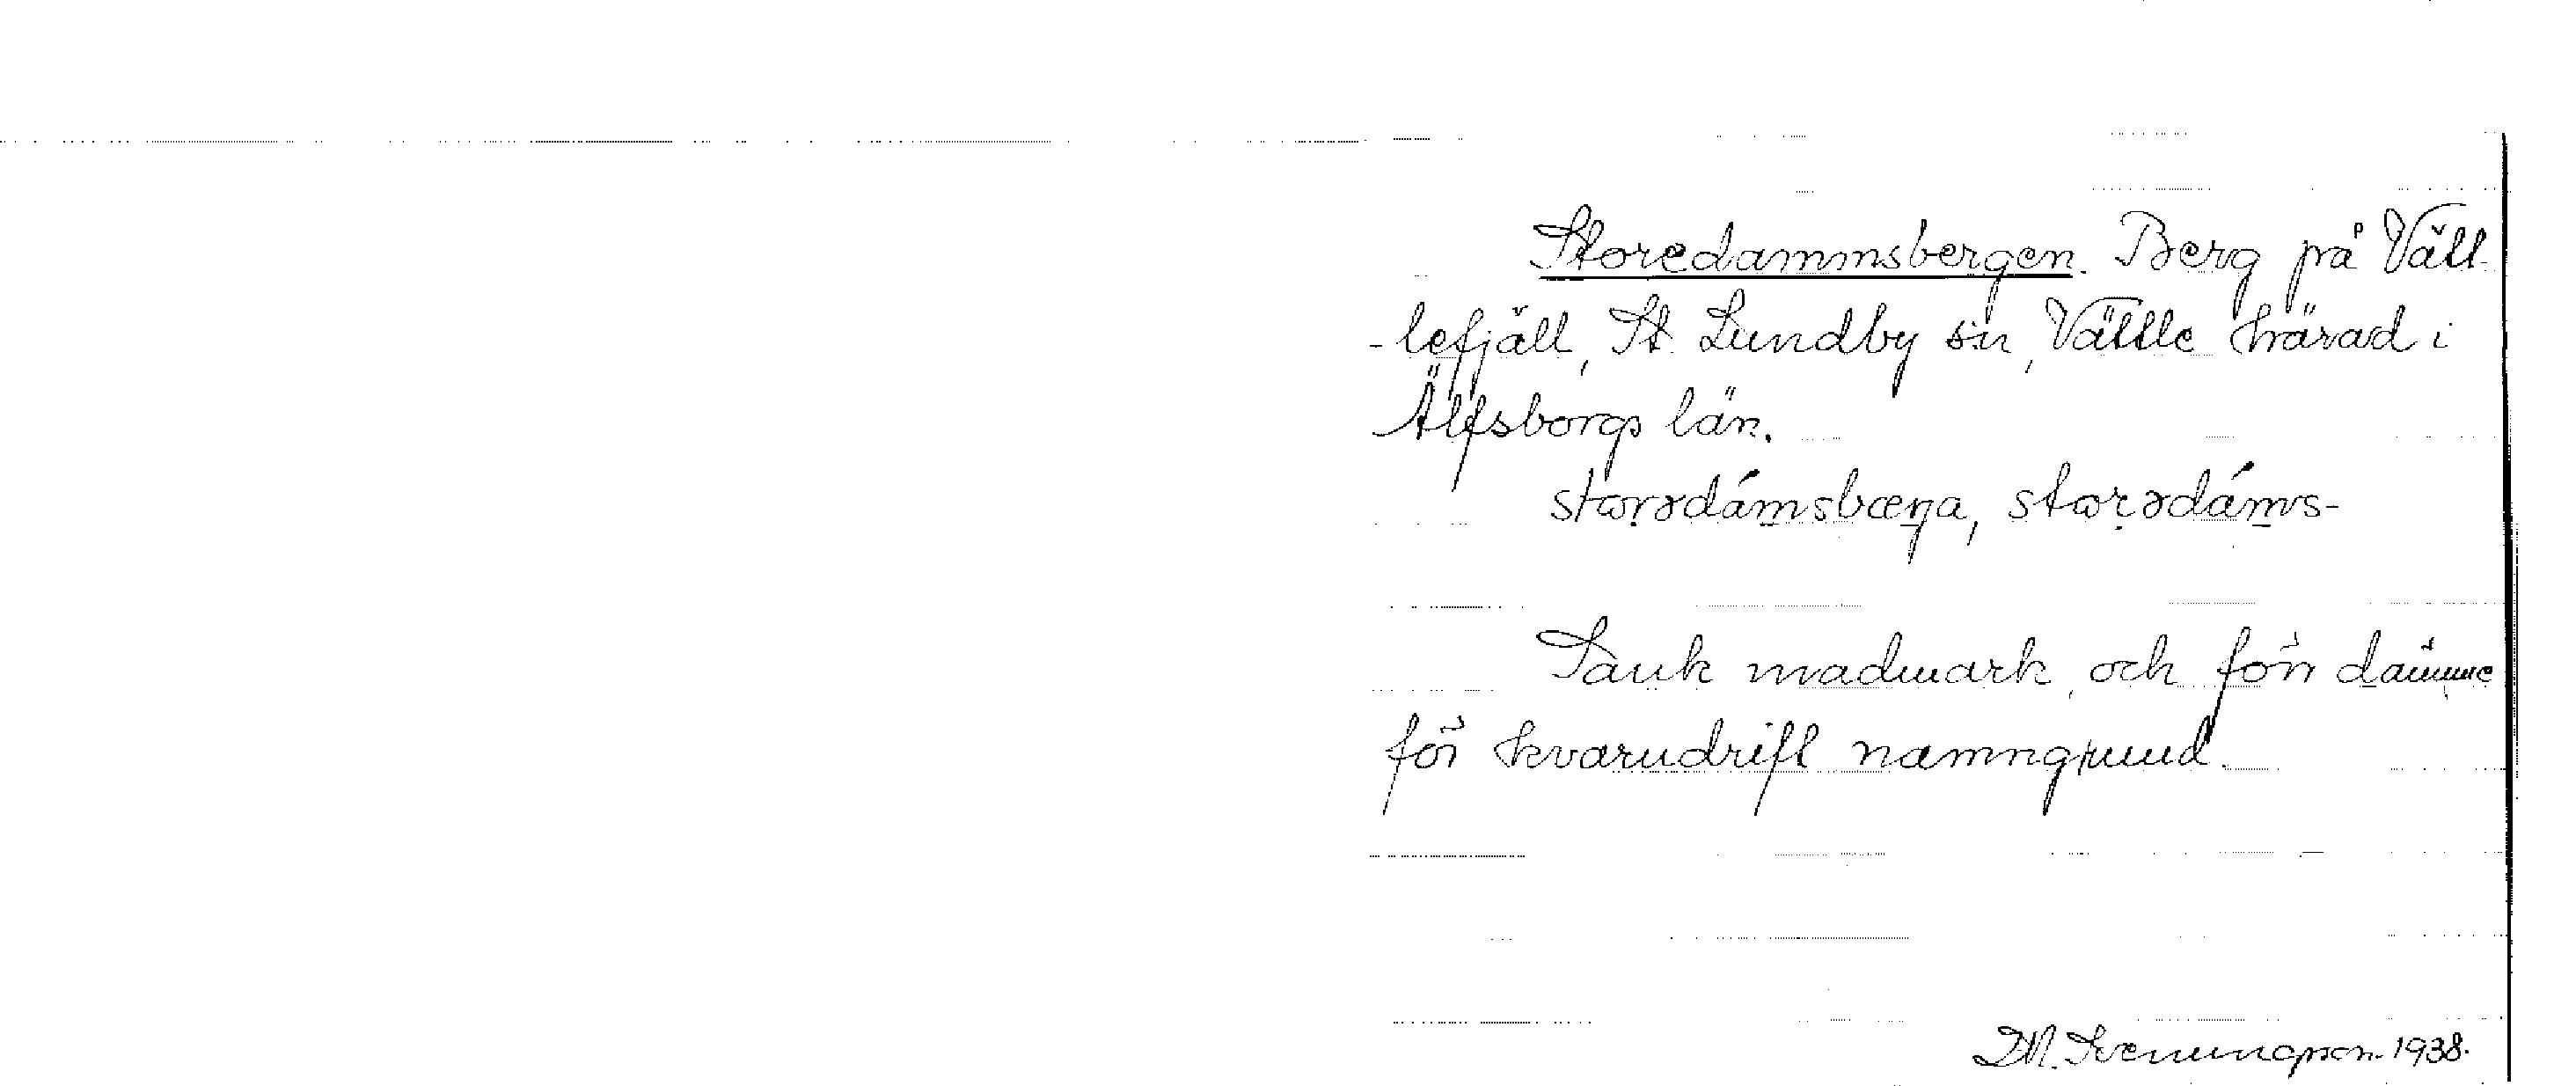 Storedammsbergen. Berg på Vätt-
-lefjäll, St. Lundby s:n, Vättle härad i
Älfsborgs län.
storədámsbæŋa, storədáms-
Sank madmark, och förr dämme
för kvarndrift namngrund.
D.M. Svenungsson. 1938.